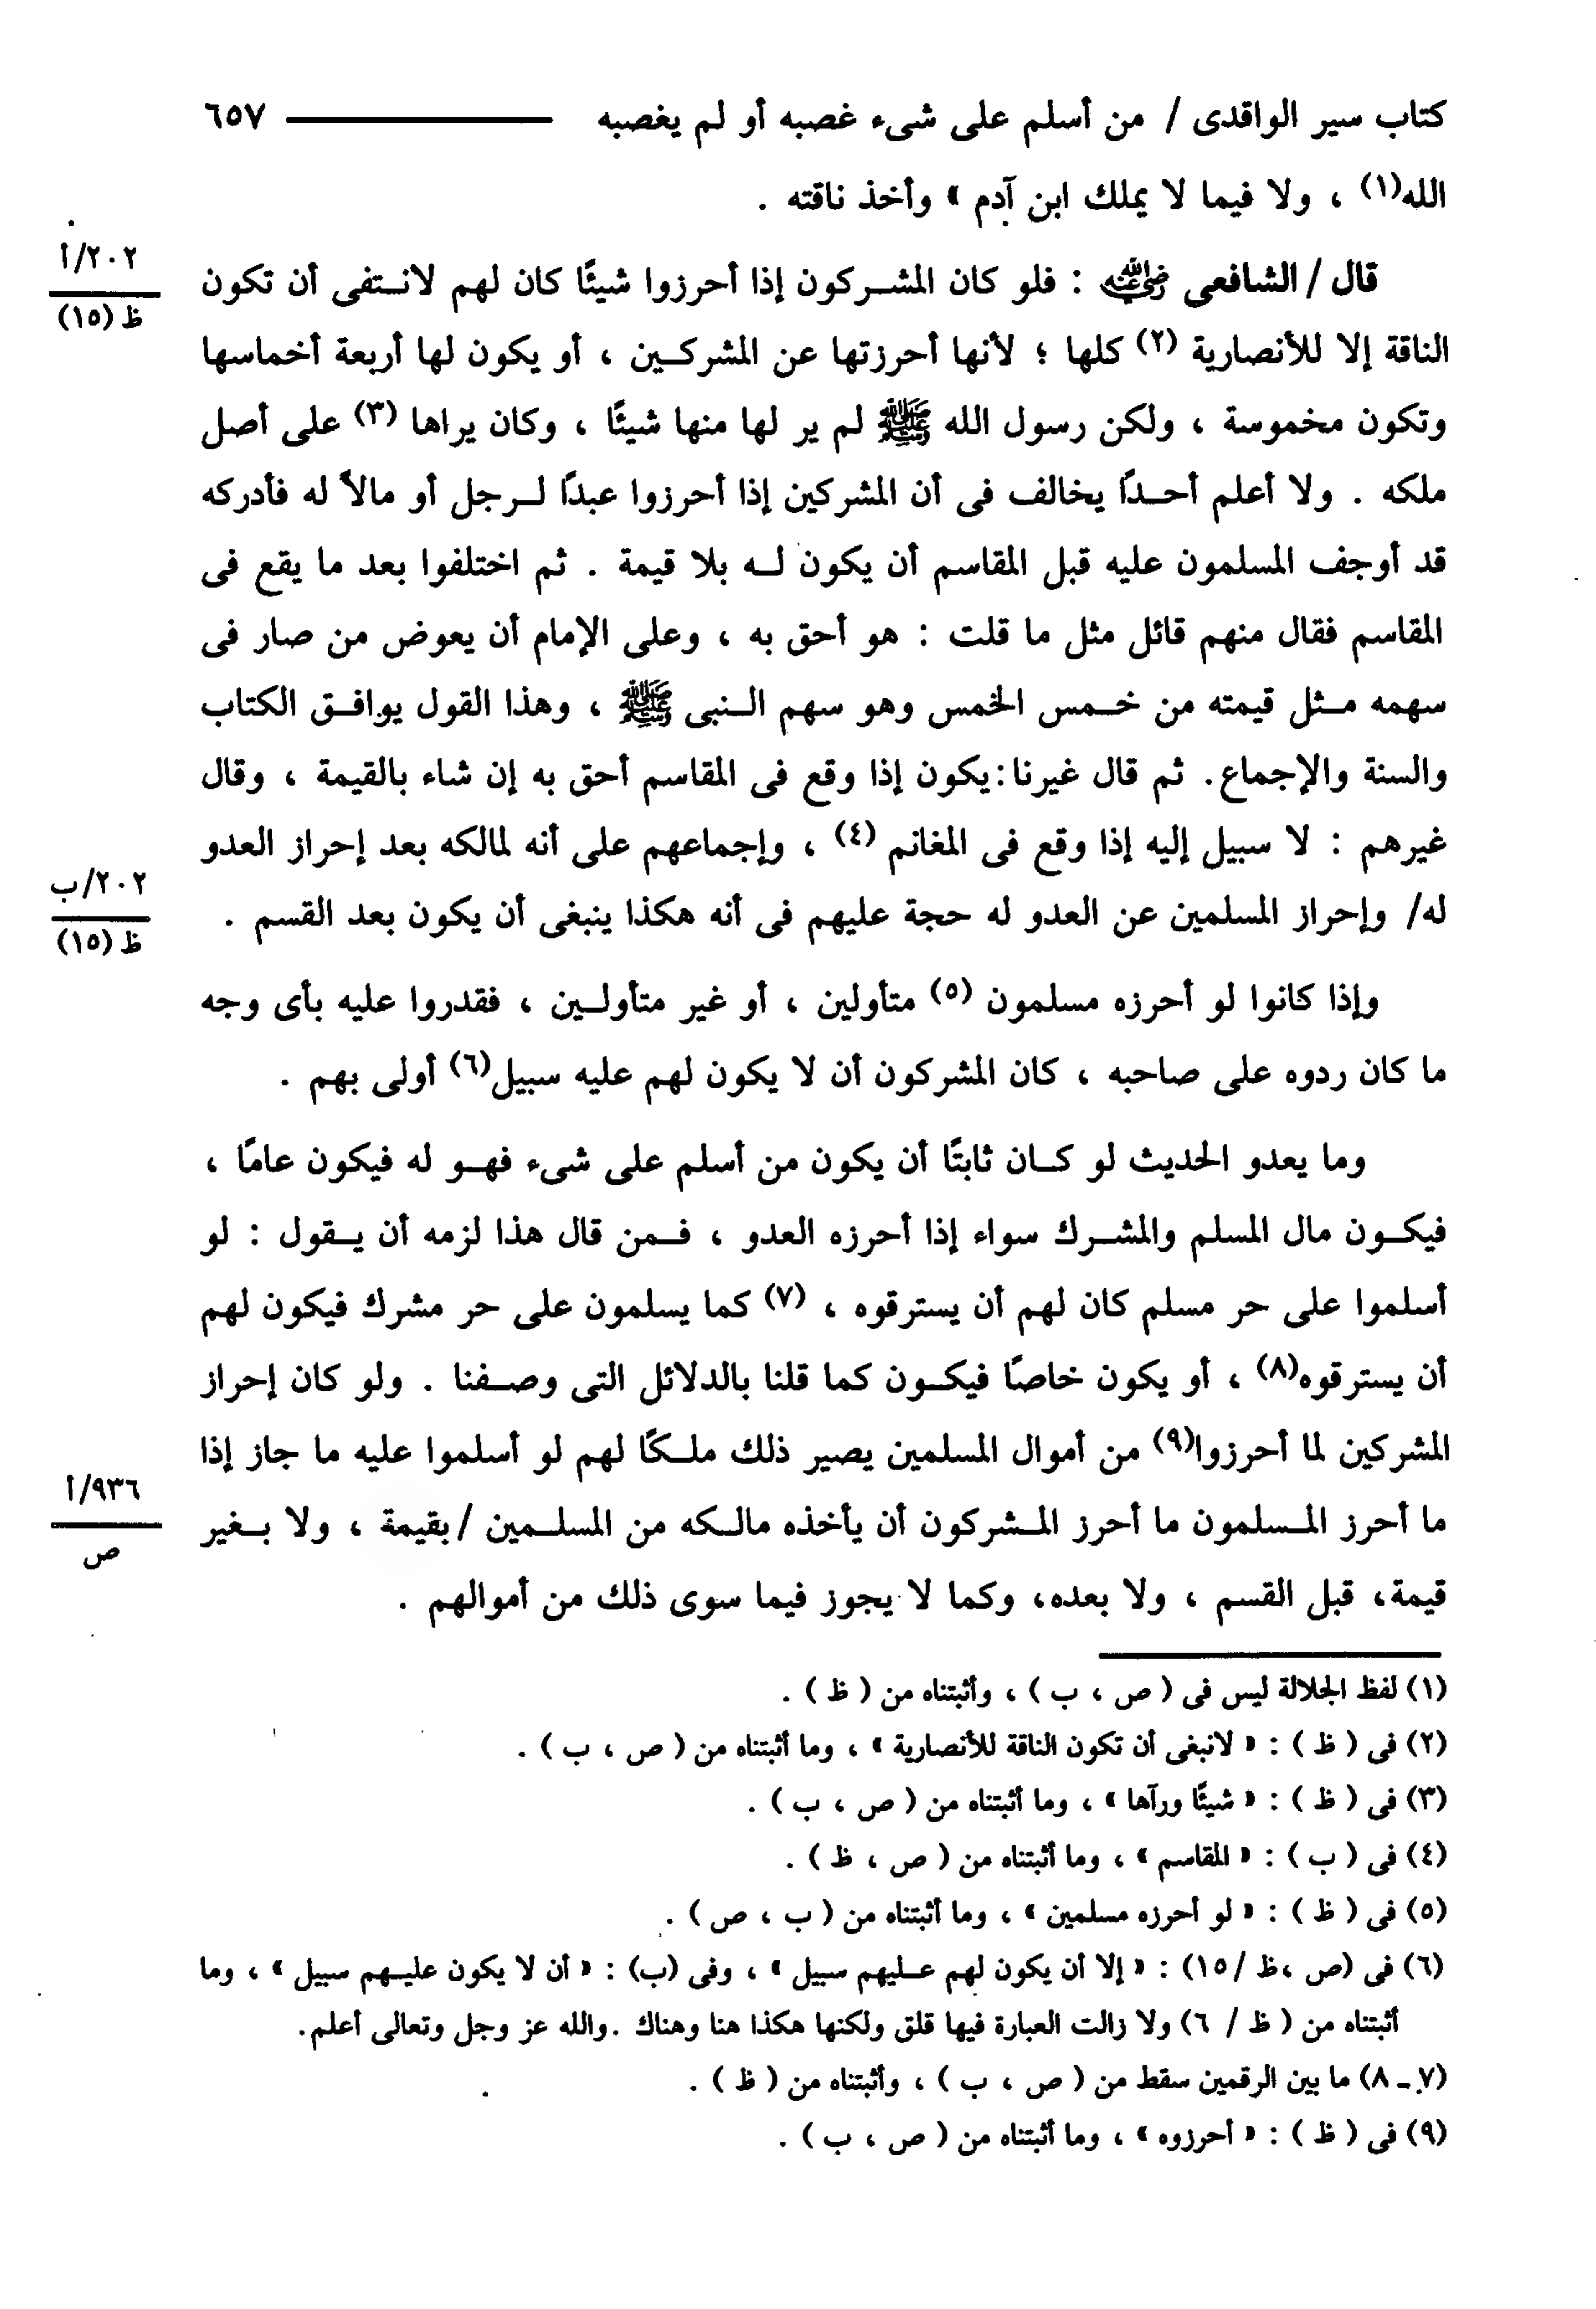 كتاب سير الواقدى / من أسلم على شىء غصبه أو لم يغصبه ٦٥٧
الله(١) ، ولا فيما لا يملك ابن آدم » وأخذ ناقته .
قال / الشافعى رضي الله عنه : فلو كان المشركون إذا أحرزوا شيئًا كان لهم لانتفى أن تكون
٢٠٢/أ
ظ (١٥)
الناقة إلا للأنصارية (٢) كلها ؛ لأنها أحرزتها عن المشركين ، أو يكون لها أربعة أخماسها
وتكون مخموسة ، ولكن رسول الله ﷺ لم ير لها منها شيئًا ، وكان يراها (٣) على أصل
ملكه . ولا أعلم أحدًا يخالف فى أن المشركين إذا أحرزوا عبدًا لرجل أو مالاً له فأدركه
قد أوجف المسلمون عليه قبل المقاسم أن يكون له بلا قيمة . ثم اختلفوا بعد ما يقع فى
المقاسم فقال منهم قائل مثل ما قلت : هو أحق به ، وعلى الإمام أن يعوض من صار فى
سهمه مثل قيمته من خمس الخمس وهو سهم النبى ﷺ ، وهذا القول يوافق الكتاب
والسنة والإجماع. ثم قال غيرنا:يكون إذا وقع فى المقاسم أحق به إن شاء بالقيمة ، وقال
غيرهم : لا سبيل إليه إذا وقع فى المغانم (٤) ، وإجماعهم على أنه لمالكه بعد إحراز العدو
٢٠٢/ب
ظ (١٥)
له/ وإحراز المسلمين عن العدو له حجة عليهم فى أنه هكذا ينبغى أن يكون بعد القسم .
وإذا كانوا لو أحرزه مسلمون (٥) متأولين ، أو غير متأولين ، فقدروا عليه بأى وجه
ما كان ردوه على صاحبه ، كان المشركون أن لا يكون لهم عليه سبيل(٦) أولى بهم .
وما يعدو الحديث لو كان ثابتًا أن يكون من أسلم على شىء فهو له فيكون عامًا ،
فيكون مال المسلم والمشرك سواء إذا أحرزه العدو ، فمن قال هذا لزمه أن يقول : لو
أسلموا على حر مسلم كان لهم أن يسترقوه ، (٧) كما يسلمون على حر مشرك فيكون لهم
أن يسترقوه(٨) ، أو يكون خاصًا فيكون كما قلنا بالدلائل التى وصفنا . ولو كان إحراز
المشركين لما أحرزوا(٩) من أموال المسلمين يصير ذلك ملكًا لهم لو أسلموا عليه ما جاز إذا
٩٣٦/أ
ص
ما أحرز المسلمون ما أحرز المشركون أن يأخذه مالكه من المسلمين /بقيمة ، ولا بغير
قيمة، قبل القسم ، ولا بعده، وكما لا يجوز فيما سوى ذلك من أموالهم .
(١) لفظ الجلالة ليس فى ( ص ، ب ) ، وأثبتناه من ( ظ ) .
(٢) فى ( ظ ) : « لانبغى أن تكون الناقة للأنصارية » ، وما أثبتناه من ( ص ، ب ) .
(٣) فى ( ظ ) : « شيئًا ورآها » ، وما أثبتناه من ( ص ، ب ) .
(٤) فى ( ب ) : « المقاسم » ، وما أثبتناه من ( ص ، ظ ) .
(٥) فى ( ظ ) : « لو أحرزه مسلمين » ، وما أثبتناه من ( ب ، ص ) .
(٦) فى (ص ،ظ /١٥) : « إلا أن يكون لهم عليهم سبيل » ، وفى (ب) : « أن لا يكون عليهم سبيل » ، وما
أثبتناه من ( ظ / ٦) ولا زالت العبارة فيها قلق ولكنها هكذا هنا وهناك .والله عز وجل وتعالى أعلم.
(٧ـ٨) ما بين الرقمين سقط من ( ص ، ب ) ، وأثبتناه من ( ظ ) .
(٩) فى ( ظ ) : « أحرزوه » ، وما أثبتناه من ( ص ، ب ) .